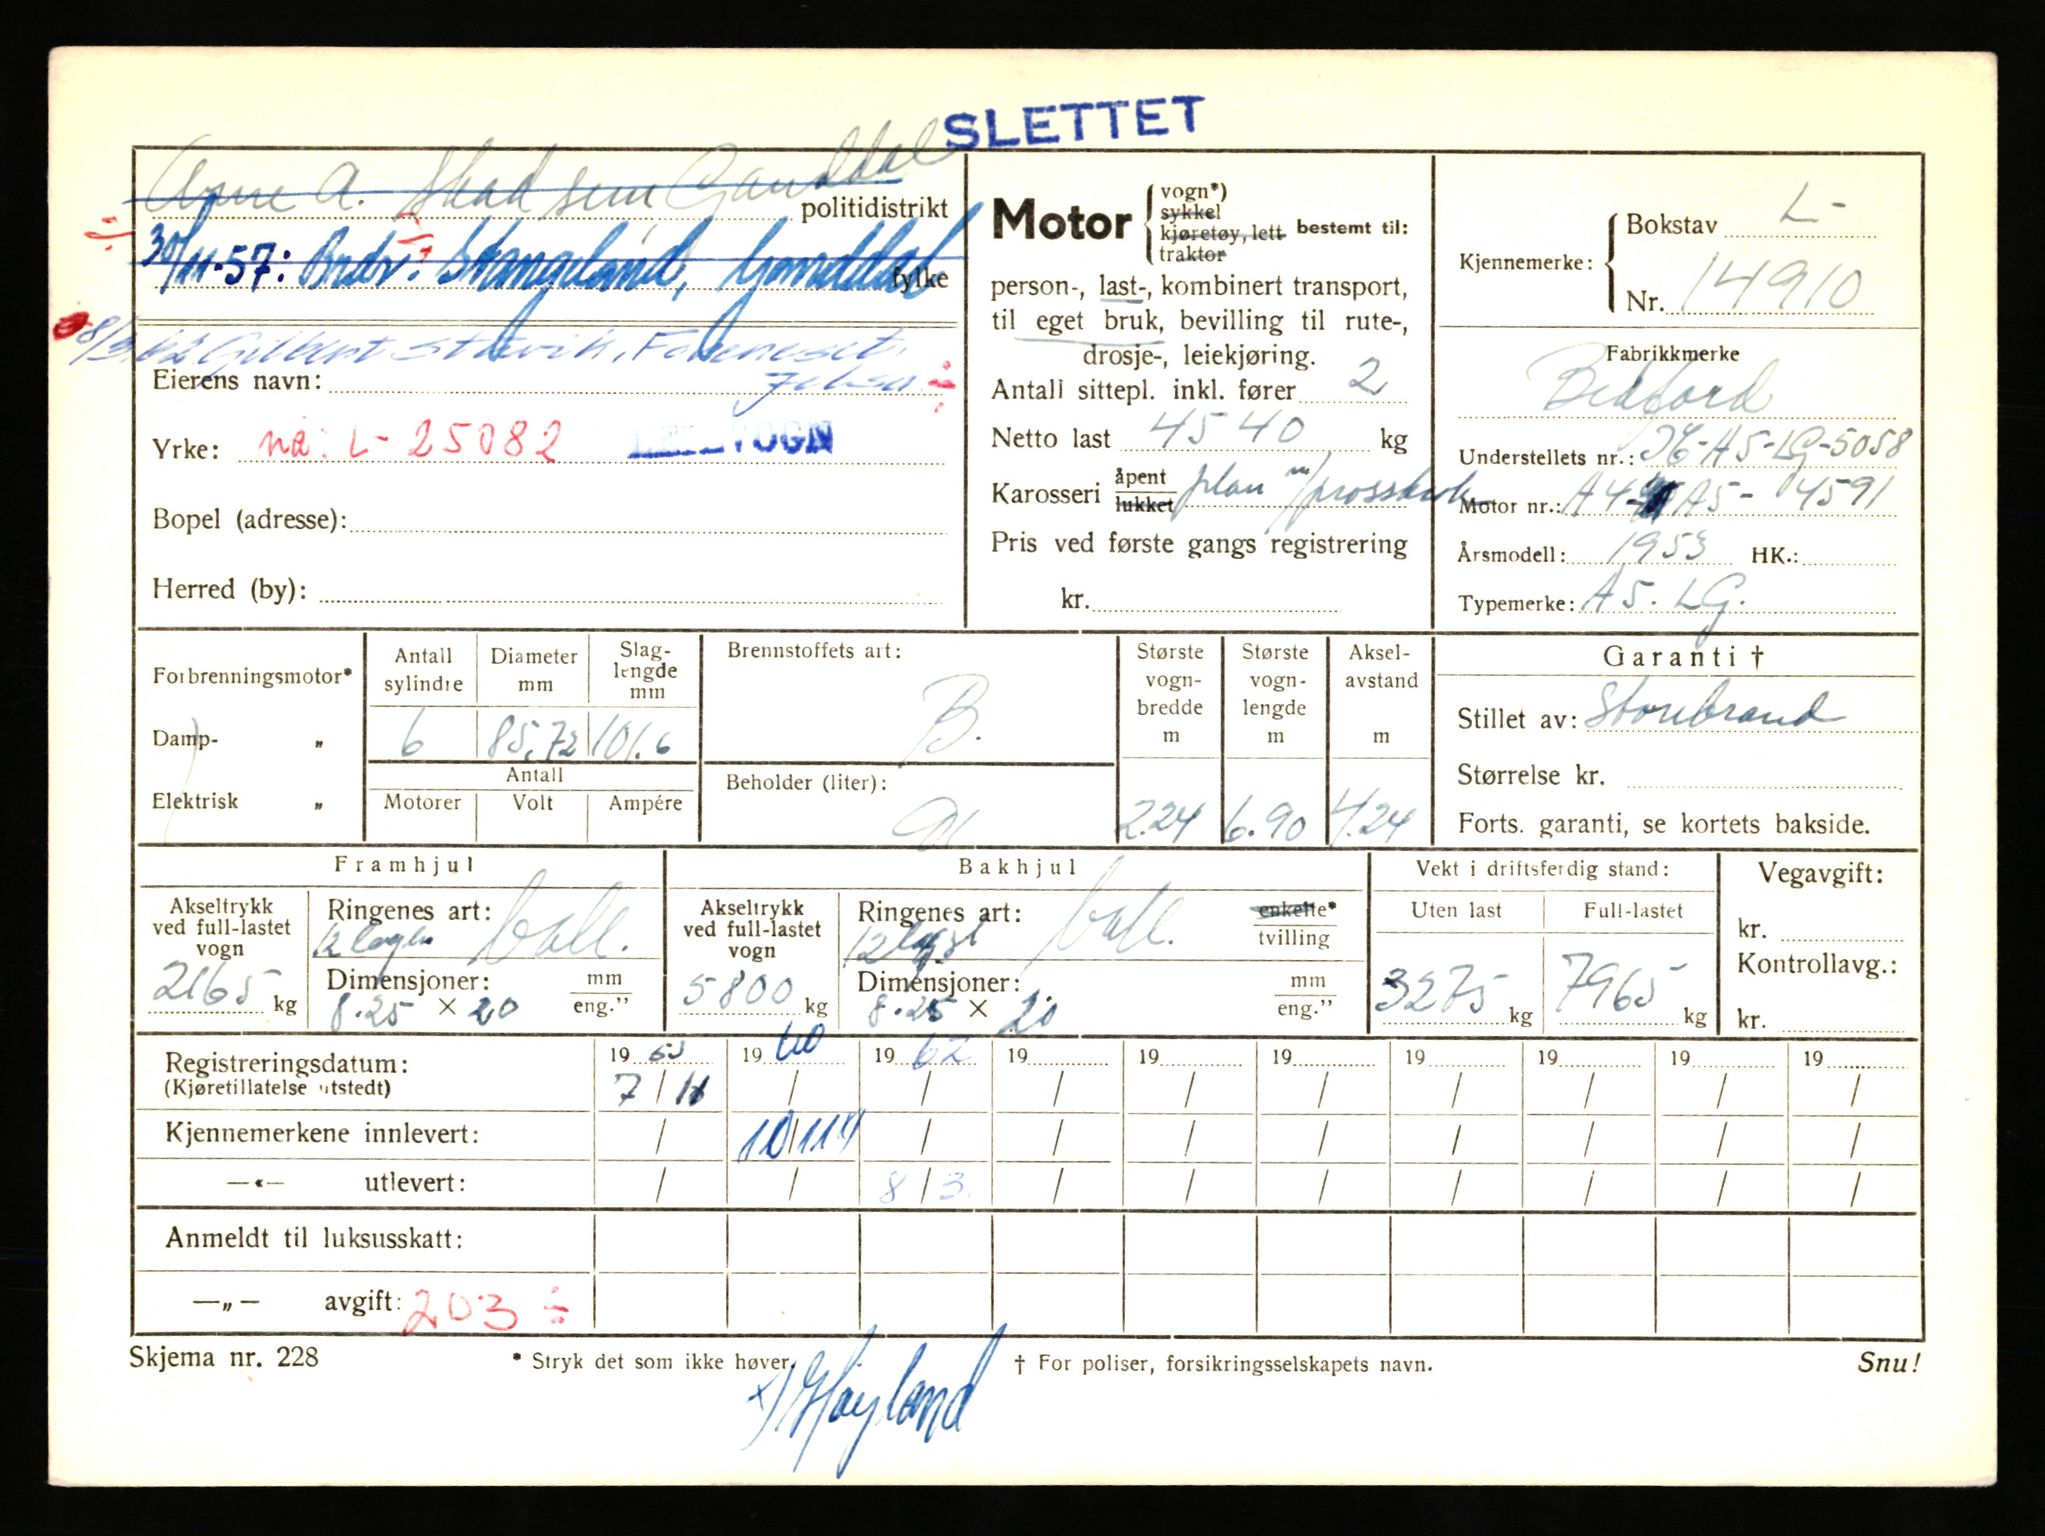 SLETTET
Arne A. Skadsem Ganddal
politidistrikt
30/11-57: Brdr. Stangeland, Ganddal
fylke
8/3.62 Gilbert Stavik, Foreneset,
Eierens navn: Jelsa
Yrke: nå: L-25082 VOGN
Bopel (adresse):
Herred (by):
Motor
vogn*)
sykkel
kjøretøy, lett
traktor
bestemt til:
person-, last-, kombinert transport,
til eget bruk, bevilling til rute-,
drosje-, leiekjøring.
Antall sittepl. inkl. fører 2
Netto last 4540 kg
Karosseri åpent
lukket
plan m/
Pris ved første gangs registrering
kr.
Kjennemerke: Bokstav L-
Nr. 14910
Fabrikkmerke
Bedford
Understellets nr.: -A5-LG-5058
Motor nr.: A4- A5- 4591
Årsmodell: 1953 HK.:
Typemerke: A5. LG.
Forbrenningsmotor*
Damp- „
Elektrisk „
Antall sylindre 6
Diameter mm 85,72
Slaglengde mm 101.6
Antall
Motorer Volt Ampére
Brennstoffets art: B.
Beholder (liter):
Største vognbredde m 2.24
Største vognlengde m 6.90
Akselavstand m 4.24
Garanti †
Stillet av: Storebrand
Størrelse kr.
Forts. garanti, se kortets bakside.
Framhjul
Akseltrykk ved full-lastet vogn 2165 kg
Ringenes art: 12 lagen ball.
Dimensjoner: 8.25 × 20 mm eng.”
Bakhjul
Akseltrykk ved full-lastet vogn 5800 kg
Ringenes art: 12 ball. enkelte* tvilling
Dimensjoner: 8.25 × 20 mm eng.”
Vekt i driftsferdig stand:
Uten last 3275 kg
Full-lastet 7965 kg
Vegavgift:
kr.
Kontrollavg.:
kr.
Registreringsdatum: 1953 1960 1962 19 19 19 19 19 19 19
(Kjøretillatelse utstedt) 7/11 / / / / / / / / /
Kjennemerkene innlevert: / 10/11 / / / / / / / /
—«— utlevert: / / 8/3 / / / / / / /
Anmeldt til luksusskatt:
—„— avgift: 203
Skjema nr. 228
* Stryk det som ikke høver.
† For poliser, forsikringsselskapets navn.
Snu!
x) Høyland